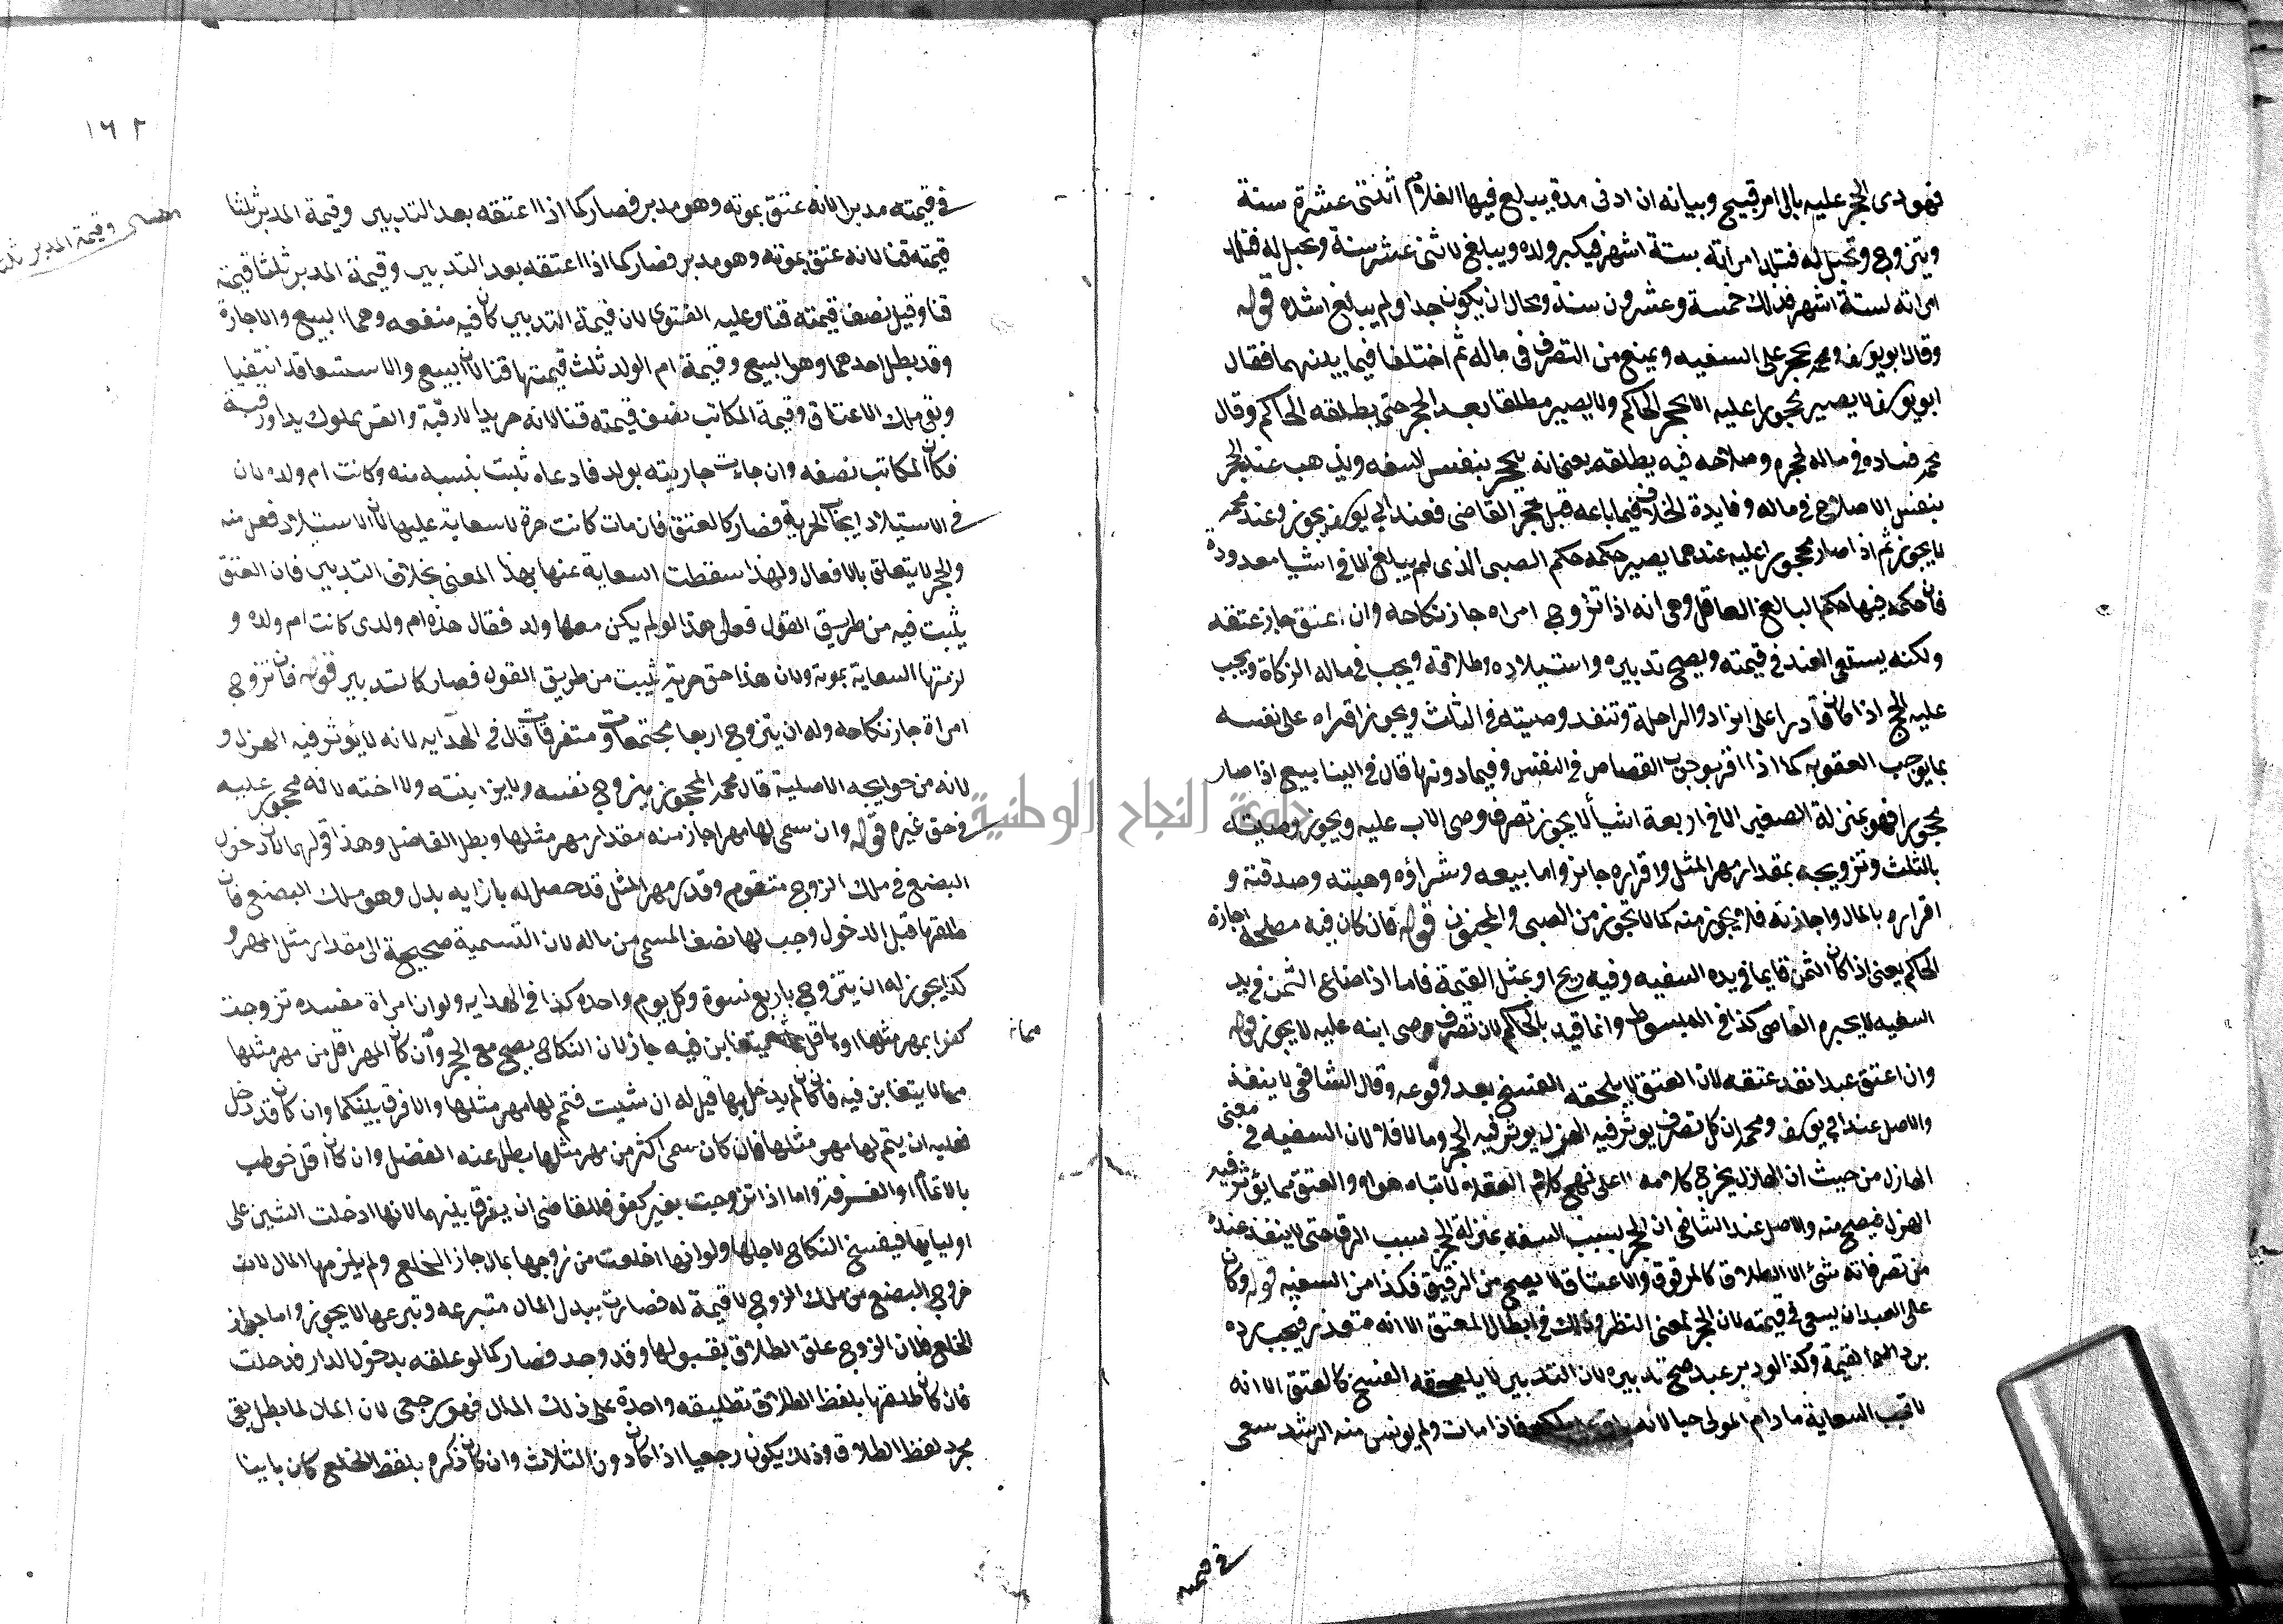 فهو دى الحجر عليه بالى امر قبيح وبيانه ان ادنى مدة يبلغ فيها الغلام اثنتى عشرة سنة
ويتزوج وتحبل له فتلد امراته بستة اشهر فيكبر ولده ويبلغ لاثنى عشر سنة وتحبل له فتلد
امراته لستة اشهر فذلك خمسة وعشرون سنة ومحال ان يكون جدا ولم يبلغ اشده قوله
وقال ابو يوسف ومحمد يحجر على السفيه ويمنع من التصرف فى ماله ثم اختلفا فيما بينهما فقال
ابو يوسف لا يصير محجورا عليه الا بحجر الحاكم ولا يصير مطلقا بعد الحجر حتى يطلقه الحاكم وقال
محمد فساده فى ماله يحجره وصلاحه فيه يطلقه يعنى انه يحجر بنفس السفه ويذهب عنه الحجر
بنفس الاصلاح فى ماله وفايدة الخلاف فيما باعه قبل حجر القاضى فعند ابى يوسف يجوز وعند محمد
لا يجوز ثم اذا صار محجورا عليه عندهما يصير حكمه حكم الصبى الذى لم يبلغ الا فى اشيا معدودة
فان حكمه فيها حكم البالغ العاقل وهى انه اذا تزوج امراه جاز نكاحه وان اعتق جاز عتقه
ولكنه يستسعى العبد فى قيمته ويصح تدبيره واستيلاده وطلاقه ويجب فى ماله الزكاة ويجب
عليه الحج اذا كان قادرا على الزاد والراحلة وتنفد وصيته فى الثلث ويجوز اقراه على نفسه
بما يوجب العقوبه كما اذا اقر بوجوب القصاص فى النفس وفيما دونها قال فى الينابيع اذا صار
محجورا فهو بمنزلة الصغير الا فى اربعة اشيأ لا يجوز تصرف وصى الاب عليه ويجوز وصيته
بالثلث وتزويجه بمقدار مهر المثل واقراره جائز واما بيعه وشراؤه وهبته وصدقته و
اقراره بالمال واجازته فلا يجوز منه كما لا يجوز من الصبى والمجنون قوله فان كان فيه مصلحة اجازه
الحاكم يعنى اذا كان الثمن قايما فى يده السفيه وفيه ربح او بمثل القيمة فاما اذا ضاع الثمن فى يد
السفيه لا يجيزه القاضى كذا فى المبسوط وانما قيد بالحاكم لان تصرف وصى ابنه عليه لا يجوز قوله
وان اعتق عبدا نفد عتقه لان العتق لا يلحقه الفسخ بعد وقوعه وقال الشافعى لا ينفذ
والاصل عند ابى يوسف ومحمد ان كل تصرف يوثر فيه الهزل يوثر فيه الحجر وما لا فلا لان السفيه فى معنى
الهازل من حيث ان الهازل يخرج كلامه لا على نهج كلام العقلاء لاتباه هواه والعتق مما لا يؤثر فيه
الهزل فيصح منه والاصل عند الشافعى ان الحجر بسبب السفه بمنزلة الحجر بسبب الرق حتى لا ينفذ عنده
من تصرفاته شئ الا الطلاق كالمرقوق والاعتاق لا يصح من الرقيق فكذا من السفيه قوله وكان
على العبد ان يسعى فى قيمته لان الحجر لمعنى النظر وذلك فى ابطال العتق الا انه متعذر فيجب رده
برد القيمة وكذا لو دبر عبد صح تدبيره لان التدبير لا يلحقه الفسخ كالعتق الا انه
لا تجب السعاية ما دام المولى حيا لانه فاذا مات ولم يونس منه الرشد سعى
فى قيمته
١٦٢
فى قيمته مدبرا لانه عتق بموته وهو مدبر فصار كما اذا اعتقه بعد التدبير وقيمة المدبر ثلثا
قيمته قنا لانه عتق بموته وهو مدبر فصار كما اذا اعتقه بعد التدبير وقيمة المدبر ثلثا قيمته
قنا وقيل نصف قيمته قنا وعليه الفتوى لان قيمة التدبير كان فيه منفعه وهما البيع والاجارة
وقد بطل احدهما وهو البيع وقيمة ام الولد ثلث قيمتها قنا لان البيع والاستسعا قد انتفيا
وبقى ملك الاعتاق وقيمة المكاتب نصف قيمته قنا لانه حر يدا لا رقبة والقن مملوك يدا ورقبة
فكان المكاتب نصفه وان جاءت جاريته بولد فادعاه ثبت نسبه منه وكانت ام ولده لان
فى الاستيلاد ايجاب الحرية فصار كالعتق فان مات كانت حرة لا سعاية عليها لان الاستيلاد فعل منه
والحجر لا يتعلق بالافعال ولهذا سقطت السعاية عنها بهذا المعنى بخلاف التدبير فان العتق
يثبت فيه من طريق القول فعلى هذا لو لم يكن معها ولد فقال هذه ام ولدى كانت ام ولده و
لزمتها السعاية بموته ولان هذا حق حرية ثبت من طريق القول فصار كالتدبير قوله فان تزوج
امراة جاز نكاحه وله ان يتزوج اربعا مجتمعات ومتفرقات قال فى الهدايه لانه لا يوثر فيه الهزل و
لانه من حوايجه الاصلية قال محمد المحجور يزوج نفسه ولا يزوج ابنته ولا اخته لانه محجور عليه
فى حق غيره قوله وان سمى لها مهرا جاز منه مقدار مهر مثلها وبطل الفاضل وهذا قولهما لان دخول
البضع فى ملك الزوج متقوم وقدر مهر المثل قد حصل له بازايه بدل وهو ملك البضع فان
طلقها قبل الدخول وجب لها نصف المسمى من ماله لان التسمية صحيحة الى مقدار مثل المهر و
كذا يجوز له ان يتزوج باربع نسوة وكل يوم واحده كذا فى الهدايه ولو ان امراة مفسده تزوجت
كفوا بمهر مثلها او باقل مما يتغابن فيه جاز لان النكاح يصح مع الحجر وان كان المهر اقل من مهر مثلها
مما لا يتغابن فيه فان كان لم يدخل بها قيل له ان شيت فتمم لها مهر مثلها والا فرق بينكما وان كان قد دخل
فعليه ان يتم لها مهر مثلها فان كان سمى اكثر من مهر مثلها بطل عنه الفضل وان كان اقل خوطب
بالاتمام او الفرقة واما اذا تزوجت بغير كفو فللقاضى ان يفرق بينهما لانها ادخلت الشين على
اوليايها فيفسخ النكاح لاجلها ولو انها اختلعت من زوجها بمال جاز الخلع ولم يلزمها المال لان
خروج البضع من ملك الزوج لا قيمة له فصارت ببدل المال متبرعه وتبرعها لا يجوز واما جواز
الخلع فلان الزوج علق الطلاق بقبولها وقد وجد فصار كما لو علقه بدخول الدار فدخلت
فان كان طلقها بلفظ الطلاق تطليقه واحدة على ذلك المال فهو رجعى لان المال لما بطل بقى
مجرد لفظ الطلاق وذلك يكون رجعيا اذا كان دون الثلاث وان كان ذكره بلفظ الخلع كان باينا
جامعة النجاح الوطنية